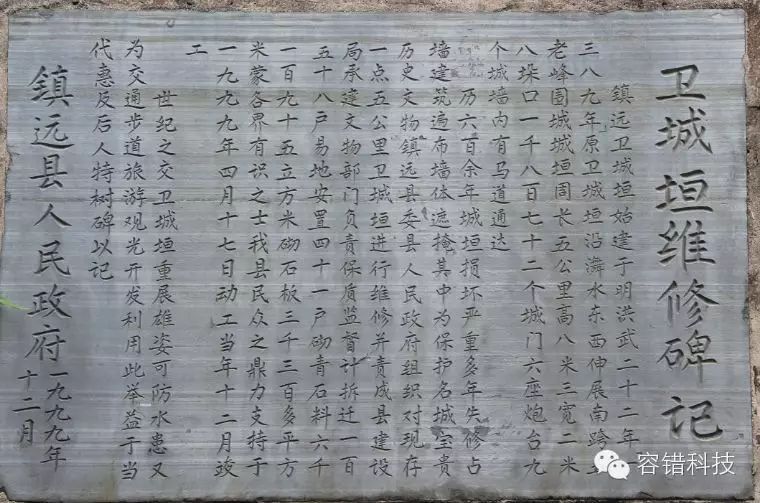 卫城垣维修碑记
镇远卫城垣始建于明洪武二十二年
三八九年原卫城垣沿㵲水东西伸展南跨
老峰围城城垣周长五公里高八米三宽二米
八垛口一千八百七十二个城门六座炮台九
个城墙内有马道通达
历六百余年城垣损坏严重多年失修占
墙建筑遍布墙体遮掩其中为保护名城宝贵
历史文物镇远县委县人民政府组织对现存
一点五公里卫城垣进行维修并责成县建设
局承建文物部门负责保质监督计拆迁一百
五十八户易地安置四十一户砌青石料六千
一百九十五立方米砌石板三千三百多平方
米蒙各界有识之士我县民众之鼎力支持于
一九九九年四月十七日动工当年十二月竣
工
世纪之交卫城垣重展雄姿可防水患又
为交通步道旅游观光开发利用此举益于当
代惠及后人特树碑以记
镇远县人民政府一九九九年
十二月
容错科技